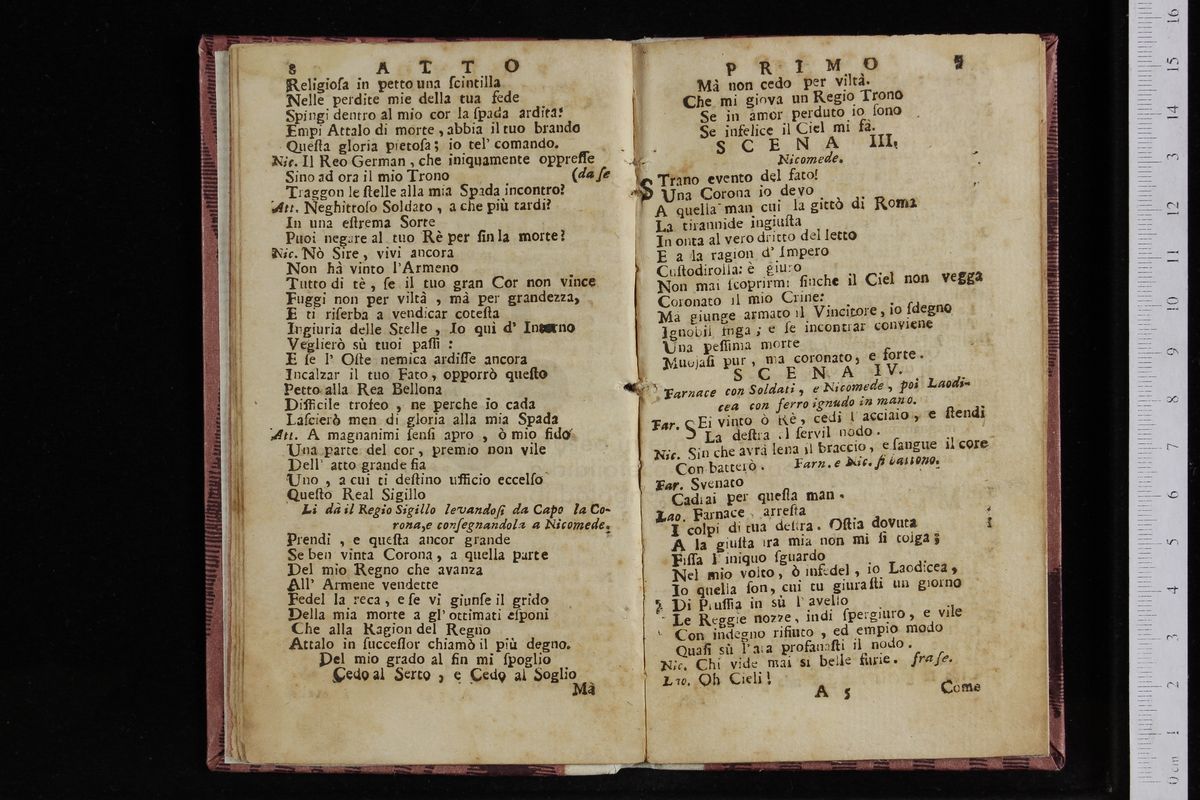 8 ATTO
Religioſa in petto una ſcintilla
Nelle perdite mie della tua fede
Spingi dentro al mio cor la ſpada ardita:
Empi Attalo di morte, abbia il tuo brando
Queſta gloria pietoſa; io tel' comando.
Nic. Il Reo German, che iniquamente oppreſſe
Sino ad ora il mio Trono (da ſe
Traggon le ſtelle alla mia Spada incontro?
Att. Neghittoſo Soldato, a che più tardi?
In una eſtrema Sorte
Puoi negare al tuo Rè per fin la morte?
Nic. Nò Sire, vivi ancora
Non hà vinto l'Armeno
Tutto di tè, ſe il tuo gran Cor non vince
Fuggi non per viltà, mà per grandezza,
E ti riſerba a vendicar coteſta
Ingiuria delle Stelle, Io quì d'
Veglierò sù tuoi paſſi:
E ſe l' Oſte nemica ardiſſe ancora
Incalzar il tuo Fato, opporrò queſto
Petto alla Rea Bellona
Difficile trofeo, ne perche io cada
Laſcierò men di gloria alla mia Spada
Att. A magnanimi ſenſi apro, ò mio fido
Una parte del cor, premio non vile
Dell' atto grande fia
Uno, a cui ti deſtino ufficio eccelſo
Queſto Real Sigillo
Li dà il Regio Sigillo levandoſi da Capo la Co-
rona, e conſegnandola a Nicomede.
Prendi, e queſta ancor grande
Se ben vinta Corona, a quella parte
Del mio Regno che avanza
All' Armene vendette
Fedel la reca, e ſe vi giunſe il grido
Della mia morte a gl'ottimati eſponi
Che alla Ragion del Regno
Attalo in ſucceſſor chiamò il più degno.
Del mio grado al fin mi ſpoglio
Cedo al Serto, e Cedo al Soglio
Mà
PRIMO 9
Mà non cedo per viltà.
Che mi giova un Regio Trono
Se in amor perduto io ſono
Se infelice il Ciel mi fà.
SCENA III.
Nicomede.
STrano evento del fato!
Una Corona io devo
A quella man cui la gittò di Roma
La tirannide ingiuſta
In onta al vero dritto del letto
E a la ragion d' Impero
Cuſtodirolla: è giuro
Non mai ſcoprirmi finche il Ciel non vegga
Coronato il mio Crine:
Ma giunge armato il Vincitore, io ſdegno
Ignobil fuga; e ſe incontrar conviene
Una peſſima morte
Muojaſi pur, ma coronato, e forte.
SCENA IV.
Farnace con Soldati, e Nicomede, poi Laodi-
cea con ferro ignudo in mano.
Far. SEi vinto ò Rè, cedi l'acciaio, e ſtendi
La deſtra al ſervil nodo.
Nic. Sin che avrà lena il braccio, e ſangue il core
Con batterò. Farn. e Nic. ſi battono.
Far. Svenato
Cadrai per queſta man.
Lao. Farnace, arreſta
I colpi di tua deſtra. Oſtia dovuta
A la giuſta ira mia non mi ſi tolga;
Fiſſa l'iniquo ſguardo
Nel mio volto, ò infedel, io Laodicea,
Io quella ſon, cui tu giuraſti un giorno
Di Pruſſia in sù l'avello
Le Reggie nozze, indi ſpergiuro, e vile
Con indegno rifiuto, ed empio modo
Quaſi sù l'ara profanaſti il nodo.
Nic. Chi vide mai sì belle furie. fra ſe.
Lao. Oh Cieli!
A 5 Come